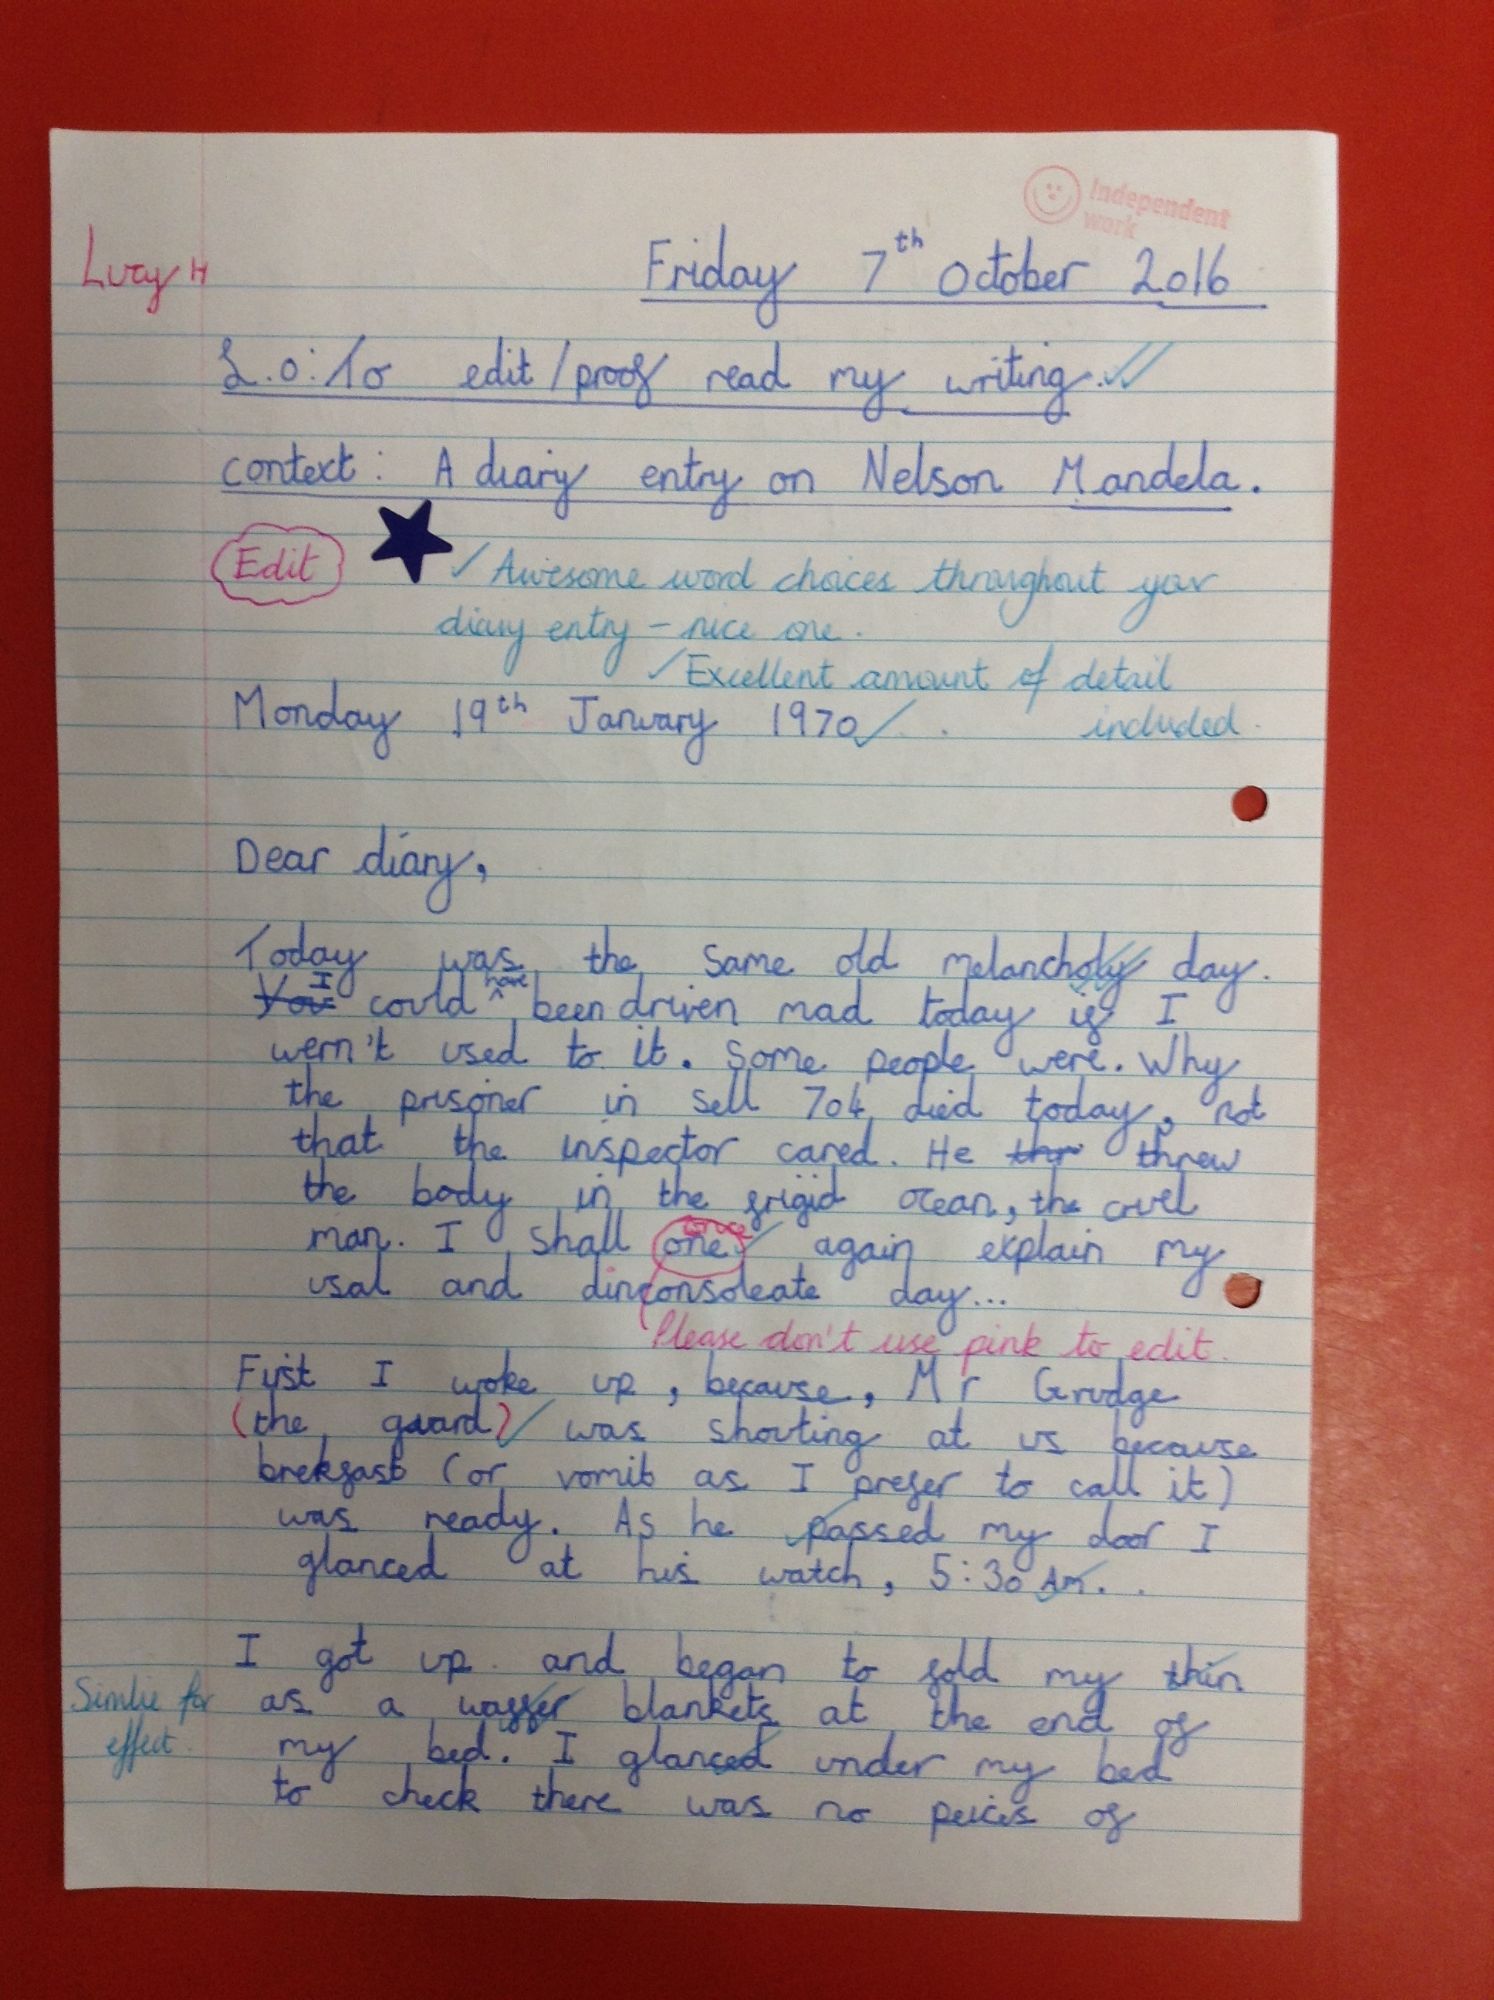 Independent
work
Lucy H
Friday 7th October 2016
L.o: To edit/proof read my writing.
context: A diary entry on Nelson Mandela.
Edit
✓ Awesome word choices throughout your
diary entry - nice one.
✓ Excellent amount of detail
included.
Monday 19th January 1970
Dear diary,
Today was the same old melancholy day.
You I could have been driven mad today if I
wern't used to it. Some people were. Why
the prisoner in sell 704 died today, not
that the inspector cared. He thr threw
the body in the frigid ocean, the cruel
man. I shall one once again explain my
usal and dinconsoleate day...
Please don't use pink to edit.
First I woke up, because, Mr Grudge
(the guard) was shouting at us because
brekfast (or vomit as I prefer to call it)
was ready. As he passed my door I
glanced at his watch, 5:30 Am.
I got up and began to fold my thin
as a waffer blankets at the end of
Simlie for
effect.
my bed. I glanced under my bed
to check there was no peices of